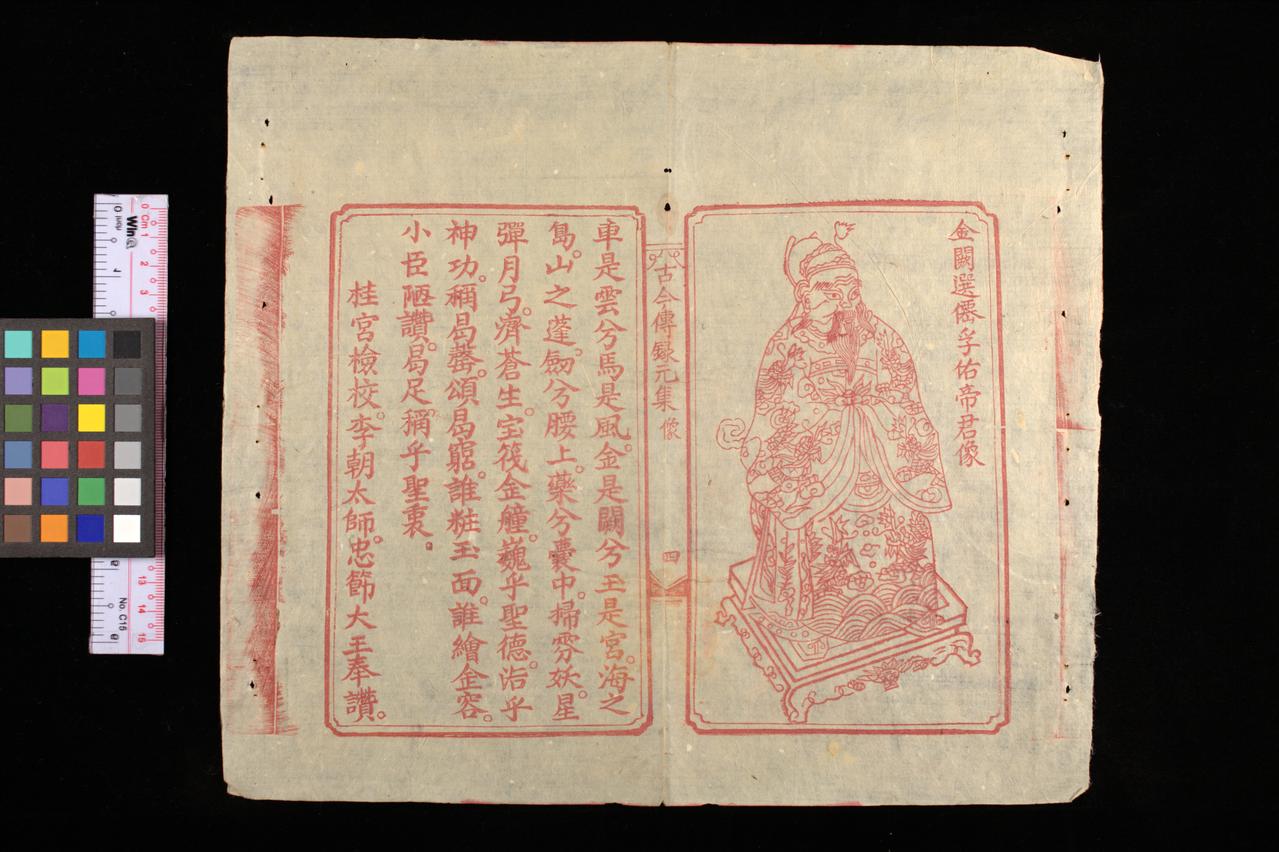 金闕選僊孚佑帝君像
古今傳録元集 像
四
車是雲兮馬是風。金是闕兮玉是宮。海之
島。山之蓬。劒兮腰上。藥兮囊中。掃雰妖。星
彈月弓。濟蒼生。宝筏金艟。巍乎聖德。浩乎
神功。稱曷罄。頌曷窮。誰粧玉面。誰繪金容。
小臣陋讚。曷足稱乎聖衷。
桂宮檢校。李朝太師。忠節大王奉讚。
0 Cm 1
2
3
13
14
15
No. C15